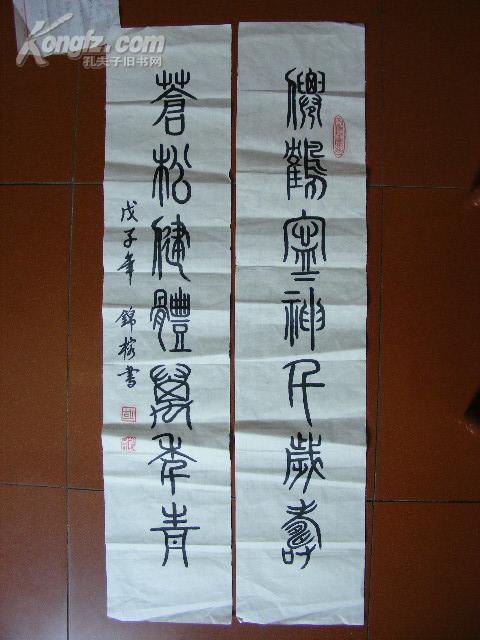 Kongfz.com
孔夫子旧书网
僊鶴寧神千歲壽
蒼松健體萬年青
戊子年 錦榕書